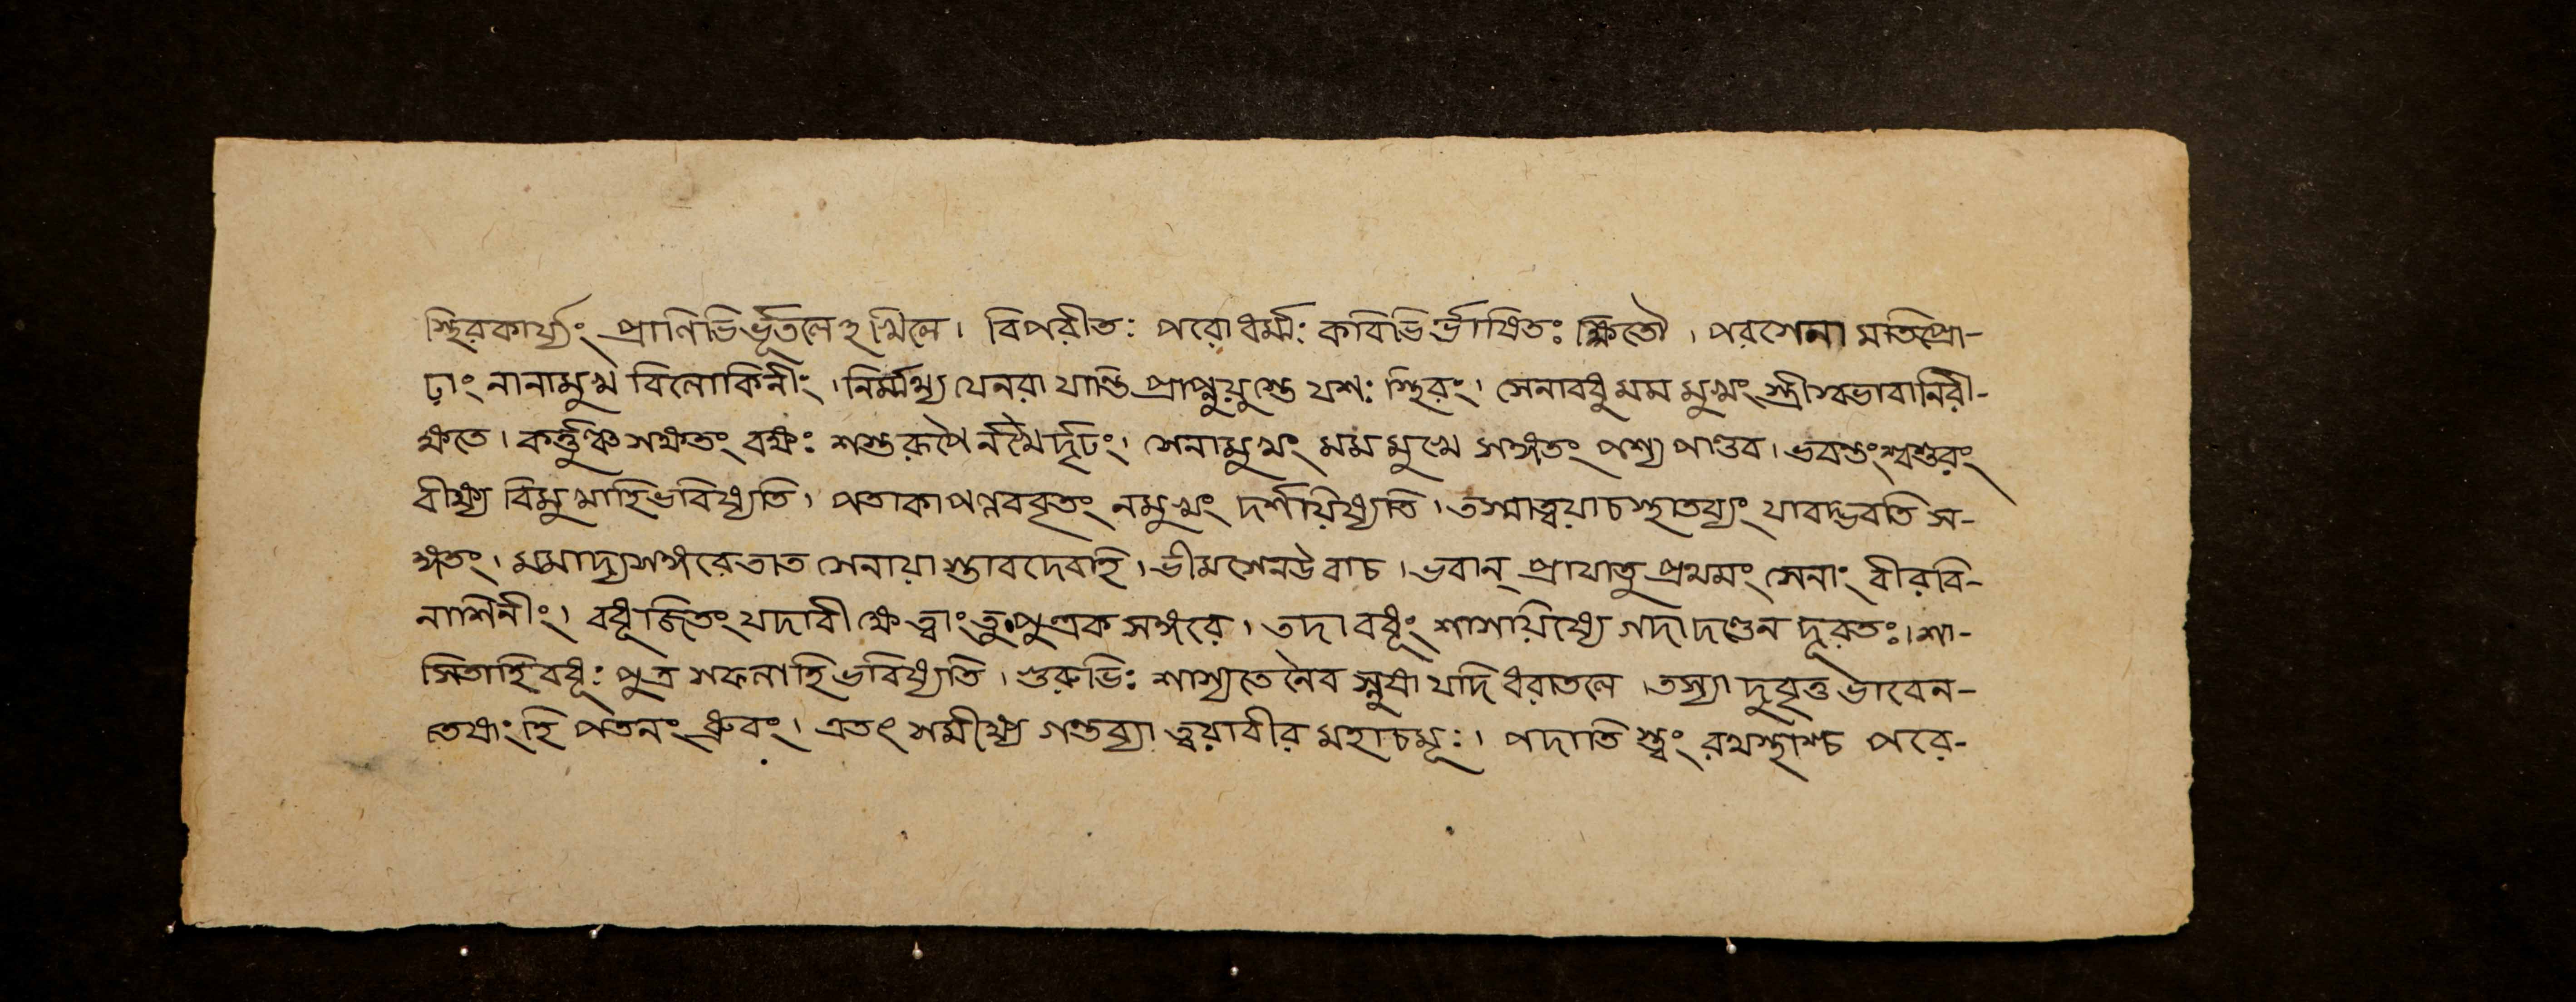 স্থিরকার্য্যং প্রাণিভির্ভূতলেঽখিলে। বিপরীতঃ পরোধর্ম্মঃ কবিভির্ভাষিতঃ ক্ষিতৌ। পরসেনা মতিপ্রৌ-
ঢ়াং নানামুখ বিলোকিনীং। নির্ম্মথ্য যেনরা যান্তি প্রাপ্নুয়ুস্তে যশঃ স্থিরং। সেনাবধু মম মুখং স্ত্রীস্বভাবানিরী-
ক্ষতে। কর্ত্তুঞ্চ সক্ষতং বক্ষঃ শস্ত্ররূপৈ র্নখৈর্দৃঢং। সেনামুখং মম মুখে সঙ্গতং পশ্য পাণ্ডব। ভবন্তংশ্বশুরং
বীক্ষ্য বিমুখাহিভবিষ্যতি। পতাকা পল্লববৃতং নমুখং দর্শয়িষ্যতি। তস্মাত্ত্বয়াচস্থাতব্যং যাবদ্ভবতি স-
ঙ্গতং। মমাদ্যসঙ্গরেতাত সেনায়া স্তাবদেবহি। ভীমসেনউবাচ। ভবান্ প্রাযাতু প্রথমং সেনাং বীরবি-
নাশিনীং। বধূজিতং যদাবীক্ষে ত্বাং তু পুত্রক সঙ্গরে। তদা বধূং শাসয়িষ্যে গদাদণ্ডেন দূরতঃ। শা-
সিতাহিবধূঃ পুত্র সফলাহি ভবিষ্যতি। গুরুভিঃ শাস্যতে নৈব স্নুষা যদি ধরাতলে। তস্যা দুবৃত্ত ভাবেন-
তেষাং হি পতনং ধ্রুবং। এতৎ সমীক্ষ্য গন্তব্যা ত্বয়াবীর মহাচমূঃ। পদাতি স্ত্বং রথস্থাশ্চ পরে-